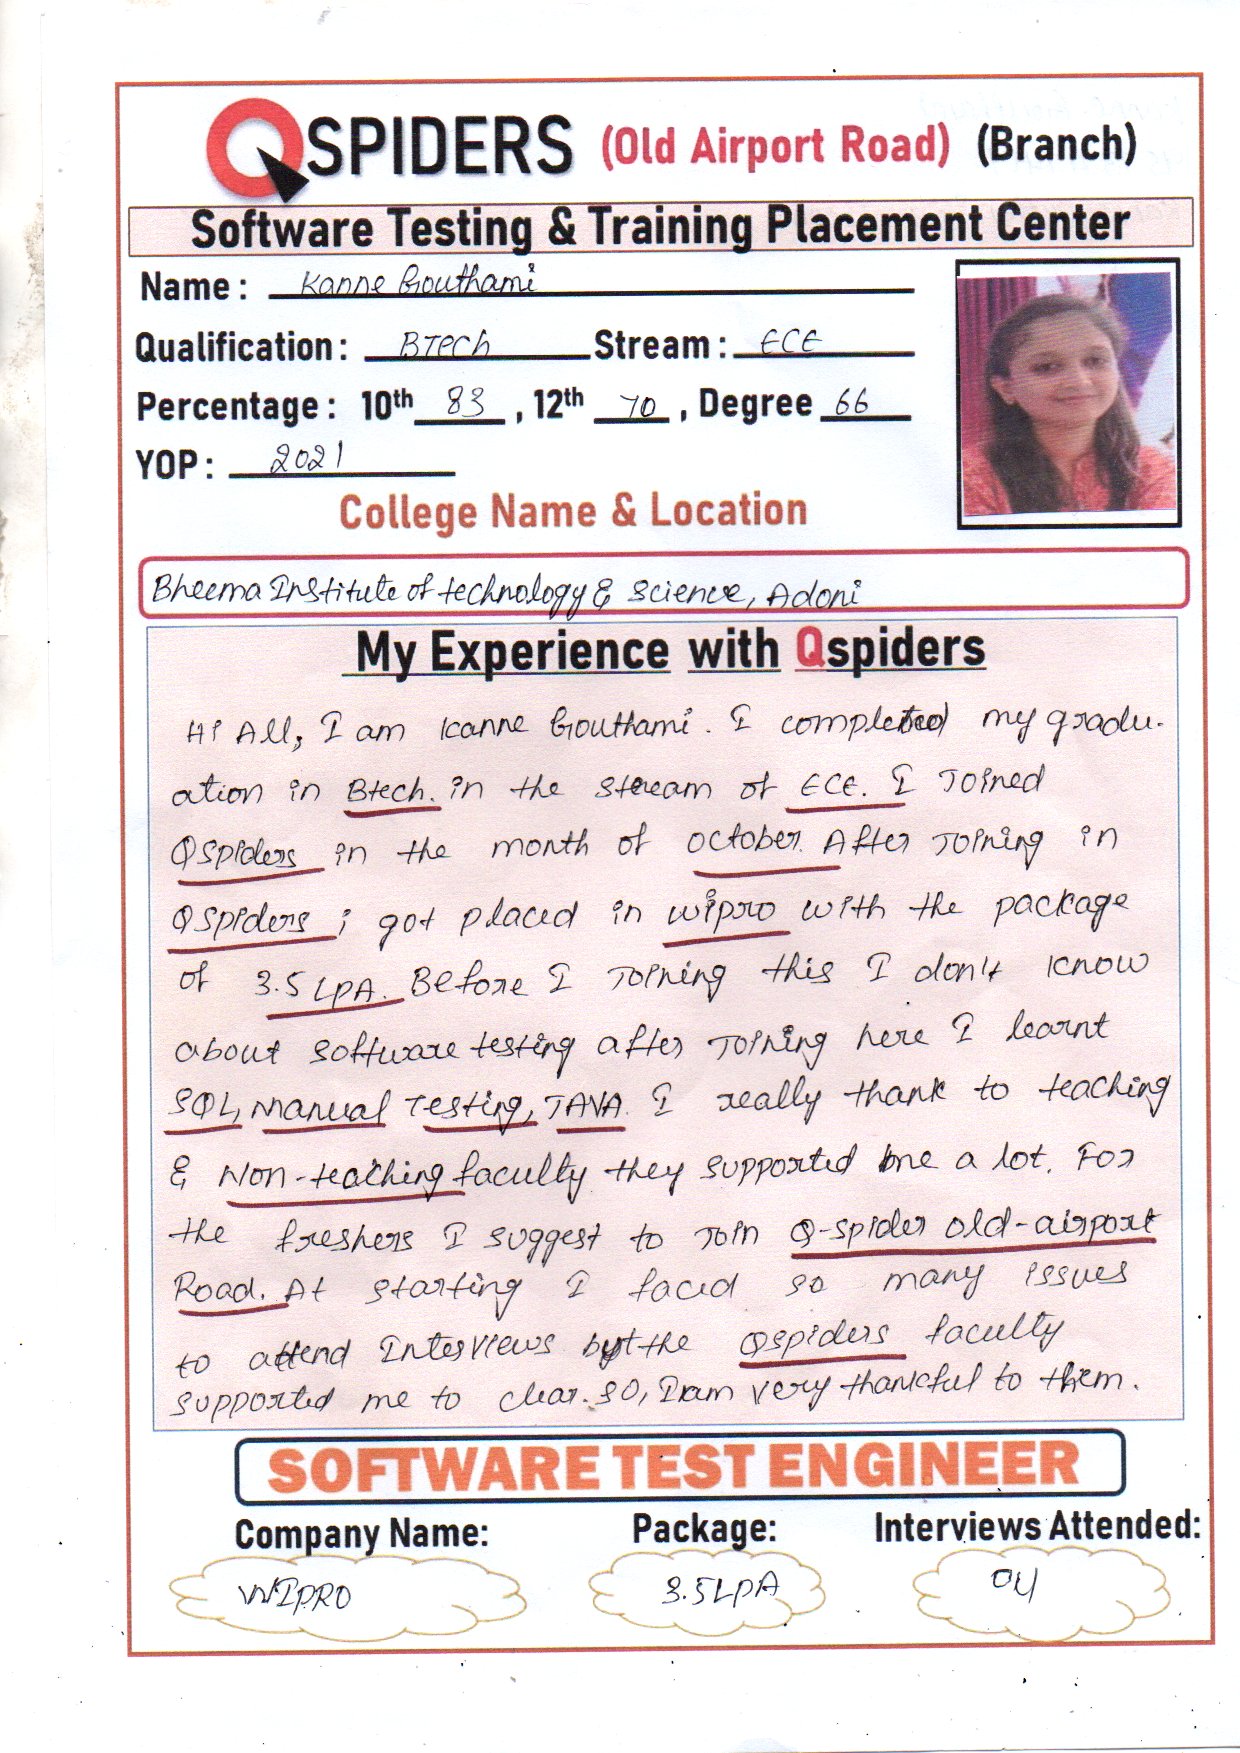 QSPIDERS (Old Airport Road) (Branch)
Software Testing & Training Placement Center
Name : Kanne Gouthami
Qualification : BTech Stream : ECE
Percentage : 10th 83 , 12th 70 , Degree 66
YOP : 2021
College Name & Location
Bheema Institute of technology & Science, Adoni
My Experience with Qspiders
Hi All, I am Kanne Gouthami. I completed my gradu-
ation in Btech. in the stream of ECE. I Joined
QSpiders in the month of October. After Joining in
QSpiders i got placed in wipro with the package
of 3.5 LPA. Before I Joining this I don't know
about software testing after Joining here I learnt
SQL, Manual Testing, JAVA. I really thank to teaching
& Non-teaching faculty they supported me a lot. For
the freshers I suggest to Join Q-spider old-airport
Road. At starting I faced so many issues
to attend Interviews but the Qspiders faculty
supported me to clear. SO, I am very thankful to them.
SOFTWARE TEST ENGINEER
Company Name: Package: Interviews Attended:
WIPRO 3.5LPA 04